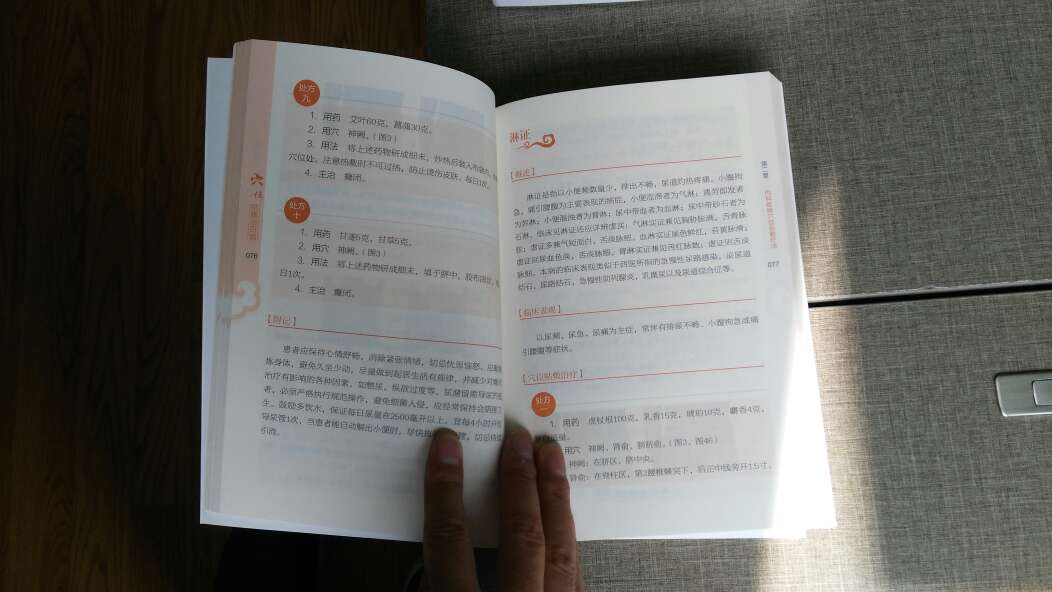 处方
九
1. 用药 艾叶60克，菖蒲30克。
2. 用穴 神阙。（图3）
3. 用法 将上述药物研成细末，炒热后装入布袋内，
穴位处。注意热敷时不可过热，防止烫伤皮肤。每日1次。
4. 主治 癃闭。
穴位
076
处方
十
1. 用药 甘遂5克，甘草5克。
2. 用穴 神阙。（图3）
3. 用法 将上述药物研成细末，填于脐中，胶布固定，
日1次。
4. 主治 癃闭。
【附记】
患者应保持心情舒畅，消除紧张情绪，切忌忧思恼怒。应
炼身体，避免久坐少动，尽量做到起居生活有规律，并减少对
治疗有影响的各种因素，如憋尿、纵欲过度等。尿潴留需导尿的
者，必须严格执行规范操作，避免细菌入侵，应经常保持会阴部
生。鼓励多饮水，保证每日尿量在2500毫升以上，宜每4小时开
导尿管1次，当患者能自动解出小便时，尽快
引流。
淋证
【概述】
淋证是指以小便频数量少，排出不畅，尿道灼热疼痛，小腹拘
急，痛引腰腹为主要表现的病症。小便涩滞者为气淋；遇劳即发者
为劳淋；小便脂浊者为膏淋；尿中带血者为血淋；尿中带砂石者为
石淋。临床见淋证还应详辨虚实：气淋实证兼见胸胁胀满，舌青脉
弦；虚证多兼气短面白，舌淡脉细。血淋实证尿色鲜红，苔黄脉滑；
虚证则尿血色淡，舌淡脉细。膏淋实证兼见舌红脉数；虚证则舌淡
脉细。本病的临床表现类似于西医所指的急慢性尿路感染、泌尿道
结石、尿路结石，急慢性前列腺炎，乳糜尿以及尿道综合征等。
【临床表现】
以尿频、尿急、尿痛为主症，常伴有排尿不畅、小腹拘急或痛
引腰腹等症状。
【穴位贴敷治疗】
处方
一
1. 用药 虎杖根100克，乳香15克，琥珀10克，麝香4克，
适量。
用穴 神阙、肾俞、膀胱俞。（图3、图46）
神阙：在脐区，脐中央。
肾俞：在脊柱区，第2腰椎棘突下，后正中线旁开1.5寸。
第二章
077